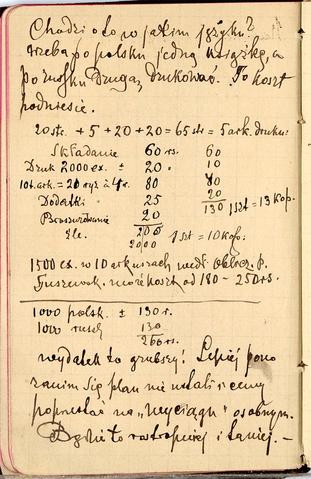 Chodzi o to w jakim języku?
trzeba po polsku jedną książkę, a
po rusku drugą, drukować. To koszt
podniesie.
20 str. + 5 + 20 + 20 = 65 str = 5 ark. druku:
Składanie 60 rs. 60
Druk 2000 ex. ± 20 10
10 t. ark. = 20 ryz à 4 r. 80 40
Dodatki 25 20
Broszurowanie 20 130 1 szt = 13 kop.
200
2000 1 szt = 10 kop.
1500 ex. w 10 arkuszach wedł. oblicz. p.
koszt od 180 – 250 rs.
1000 polsk. ± 130 r.
1000 rusk 130
260 rs.
wydatek to grubszy! Lepiej
zanim się plan nie ustali i ceny
poprzestać na „wyciągu” osobnym.
Będzie to roztropniej i taniej. –